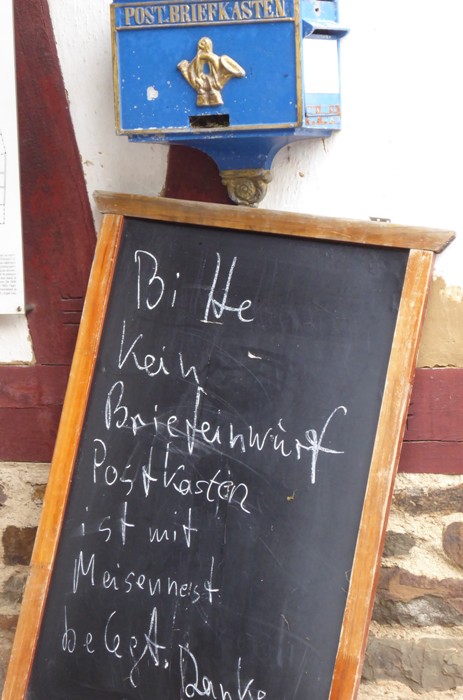 POST.BRIEFKASTEN
Bitte
Kein
Briefeinwurf
Postkasten
ist mit
Meisennest
belegt. Danke